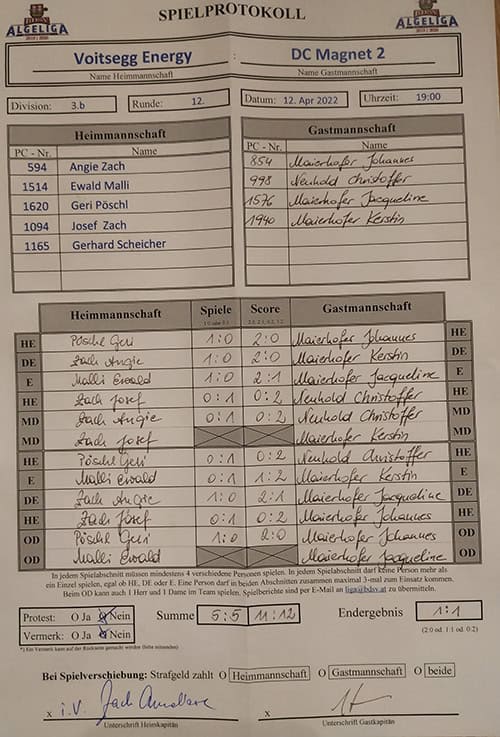 SPIELPROTOKOLL
ALGELIGA
ALGELIGA
Voitsegg Energy : DC Magnet 2
Name Heimmannschaft Name Gastmannschaft
Division: 3.b Runde: 12. Datum: 12. Apr 2022 Uhrzeit: 19:00
Heimmannschaft Gastmannschaft
PC - Nr. Name PC - Nr. Name
594 Angie Zach 854 Maierhofer Johannes
1514 Ewald Malli 998 Neuhold Christoffer
1620 Geri Pöschl 1576 Maierhofer Jacqueline
1094 Josef Zach 1940 Maierhofer Kerstin
1165 Gerhard Scheicher
Heimmannschaft Spiele Score Gastmannschaft
HE Pöschl Geri 1:0 2:0 Maierhofer Johannes HE
DE Zach Angie 1:0 2:0 Maierhofer Kerstin DE
E Malli Ewald 1:0 2:1 Maierhofer Jacqueline E
HE Zach Josef 0:1 0:2 Neuhold Christoffer HE
MD Zach Angie 0:1 0:2 Neuhold Christoffer MD
MD Zach Josef Maierhofer Kerstin MD
HE Pöschl Geri 0:1 0:2 Neuhold Christoffer HE
E Malli Ewald 0:1 1:2 Maierhofer Kerstin E
DE Zach Angie 1:0 2:1 Maierhofer Jacqueline DE
HE Zach Josef 0:1 0:2 Maierhofer Johannes HE
OD Pöschl Geri 1:0 2:0 Maierhofer Johannes OD
OD Malli Ewald Maierhofer Jacqueline OD
In jedem Spielabschnitt müssen mindestens 4 verschiedene Personen spielen. In jedem Spielabschnitt darf keine Person mehr als
ein Einzel spielen, egal ob HE, DE oder E. Eine Person darf in beiden Abschnitten zusammen maximal 3-mal zum Einsatz kommen.
Beim OD kann auch 1 Herr und 1 Dame im Team spielen. Spielberichte sind per E-Mail an liga@bdsv.at zu übermitteln.
Protest: O Ja O Nein Summe 5:5 11:12 Endergebnis 1:1
Vermerk: O Ja O Nein (2:0 od. 1:1 od. 0:2)
*) Ein Vermerk kann auf der Rückseite gemacht werden (bitte mitsenden)
Bei Spielverschiebung: Strafgeld zahlt O Heimmannschaft O Gastmannschaft O beide
x i.V. Zach x
Unterschrift Heimkapitän Unterschrift Gastkapitän